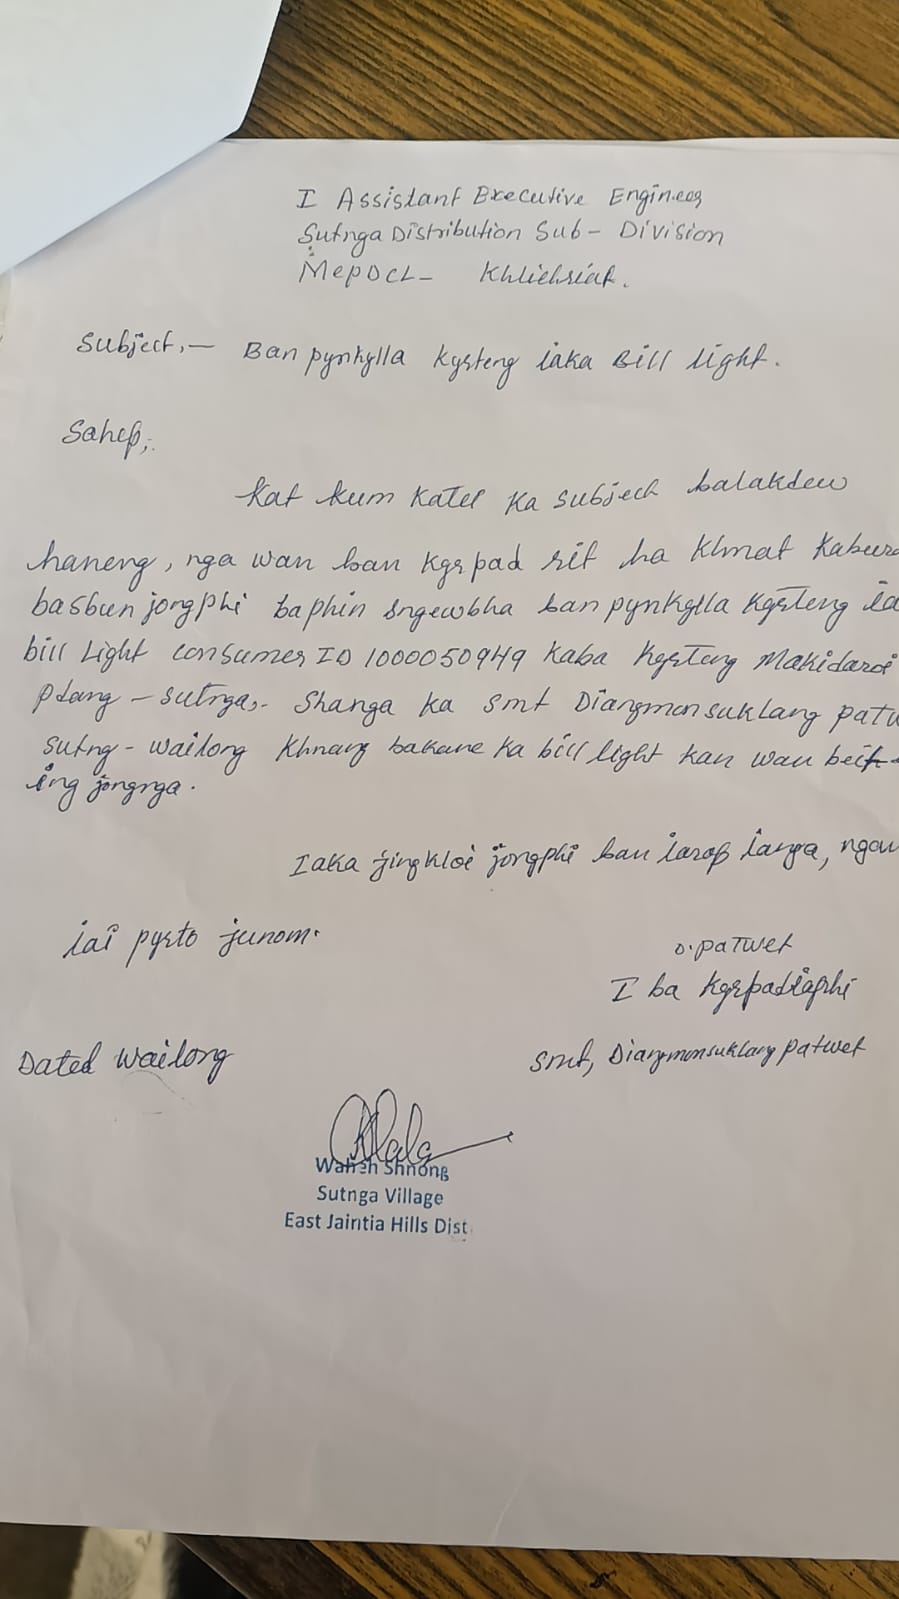 I Assistant Executive Engineer
Sutnga Distribution Sub - Division
MePDCL - Khliehriat.
Subject,- Ban pynkylla kyrteng iaka Bill light.
Saheb,
Kat kum katei ka subject balakdew
haneng, nga wan ban kyrpad rit ha khmat kabura
basbun jongphi baphin sngewbha ban pynkylla kyrteng ia
bill Light consumer ID 1000050949 kaba kyrteng Makidaroi
Pdang - Sutnga,- Shanga ka smt Diangmonsuklang patw
sutng - wailong khnang bakane ka bill light kan wan beit
ing jongnga.
Iaka jingkloi jongphi ban iarap ianga, ngan
iai pyrto junom.
D. Patwet
I ba kyrpadiaphi
Dated Wailong
Smt, Diangmonsuklang Patwet
Waheh Shnong
Sutnga Village
East Jaintia Hills Dist.